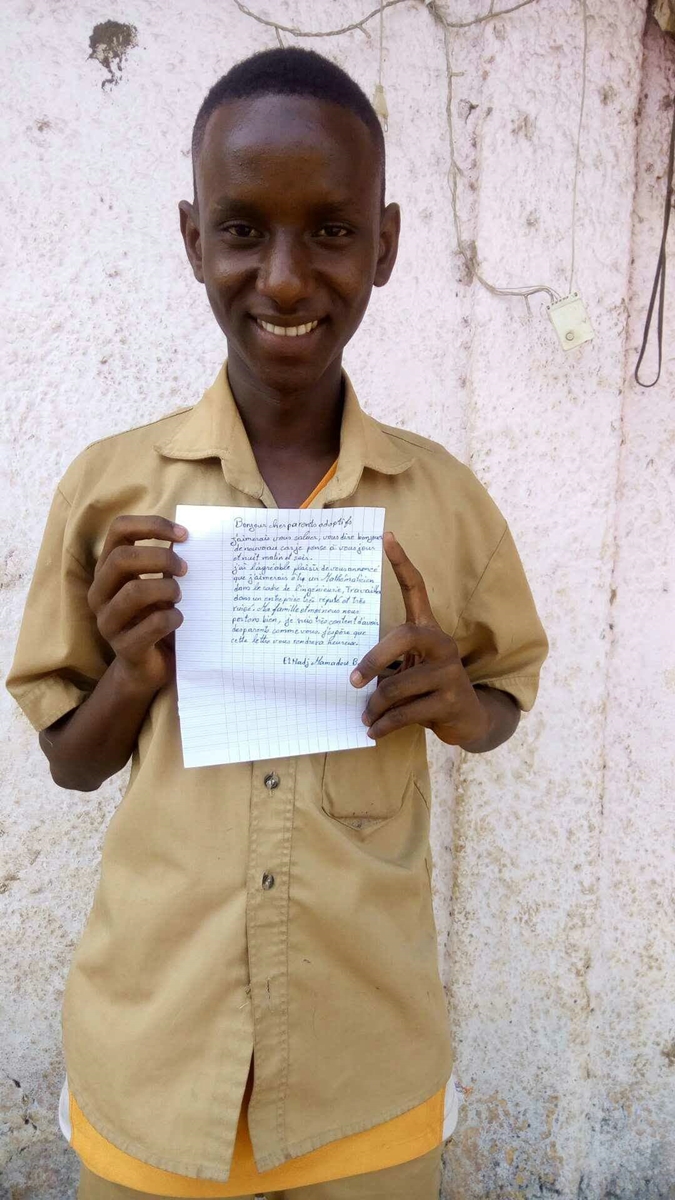 Bonjour chers parents adoptifs
j'aimerais vous saluer, vous dire bonjour
de nouveau car je pense à vous jour
et nuit matin et soir.
j'ai l'agréable plaisir de vous annoncé
que j'aimerais être un Mathématicien
dans le cadre de l'ingénieurie, Travailler
dans un entreprise très réputé et très
visé. Ma famille et moi nous nous
portons bien, je suis très content d'avoir
des parents comme vous j'espère que
cette lettre vous rendrera heureux.
El Hadj Mamadou B